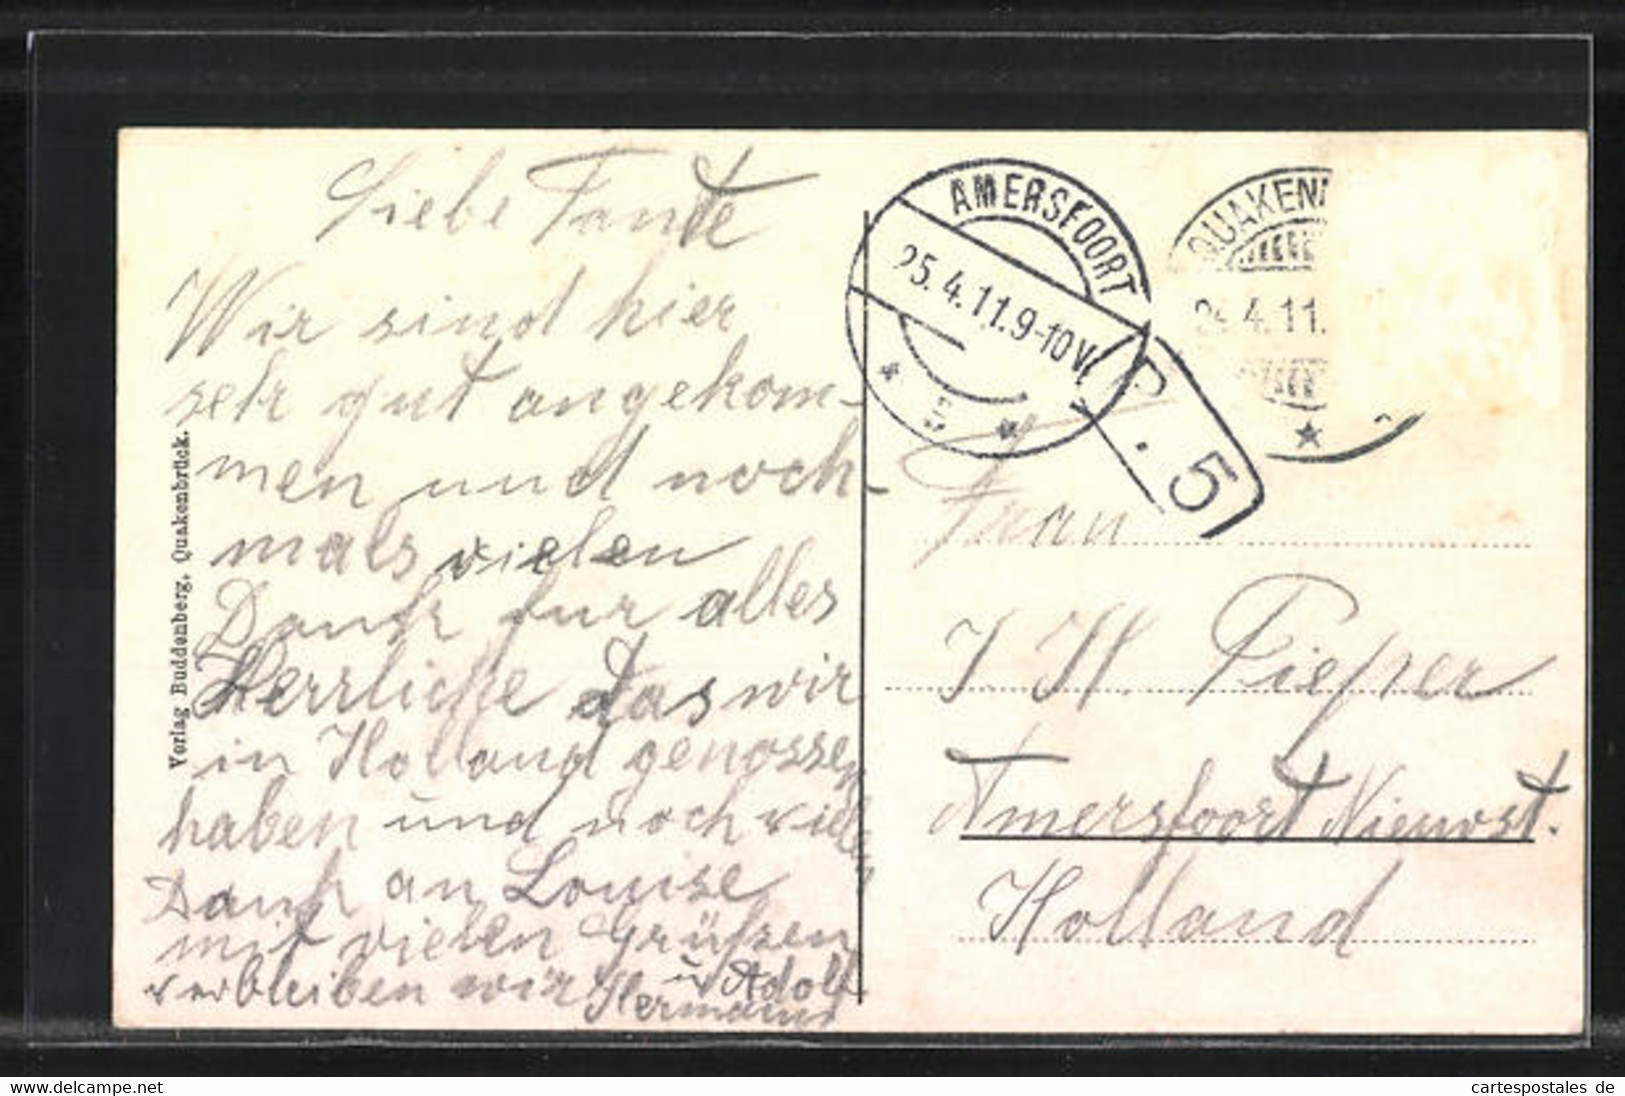 Liebe Tante
Wir sind hier
sehr gut angekom-
men und noch-
mals vielen
Dank für alles
Herrliche das wir
in Holland genossen
haben und noch vielen
Dank an Louise
mit vielen Grüßen
verbleiben wir Hermann
u Adolf
Verlag Buddenberg, Quakenbrück.
AMERSFOORT
25.4.11.9-10V
5
QUAKEN
4.11.
5
Frau
J H. Pieper
Amersfoort Nieuwst.
Holland
www.delcampe.net
cartespostales de